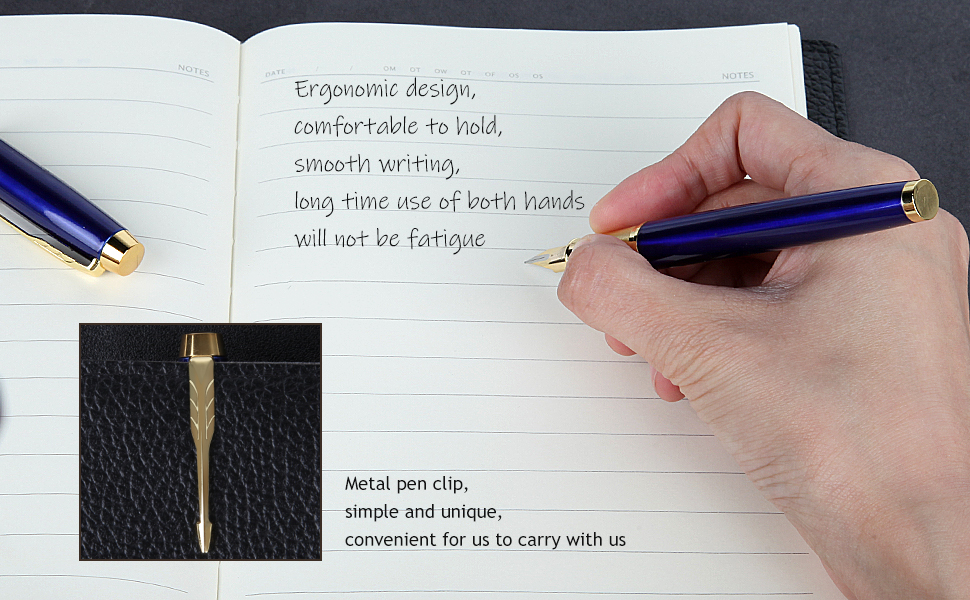 NOTES
DATE / / NOTES
Ergonomic design,
comfortable to hold,
smooth writing,
long time use of both hands
will not be fatigue
Metal pen clip,
simple and unique,
convenient for us to carry with us